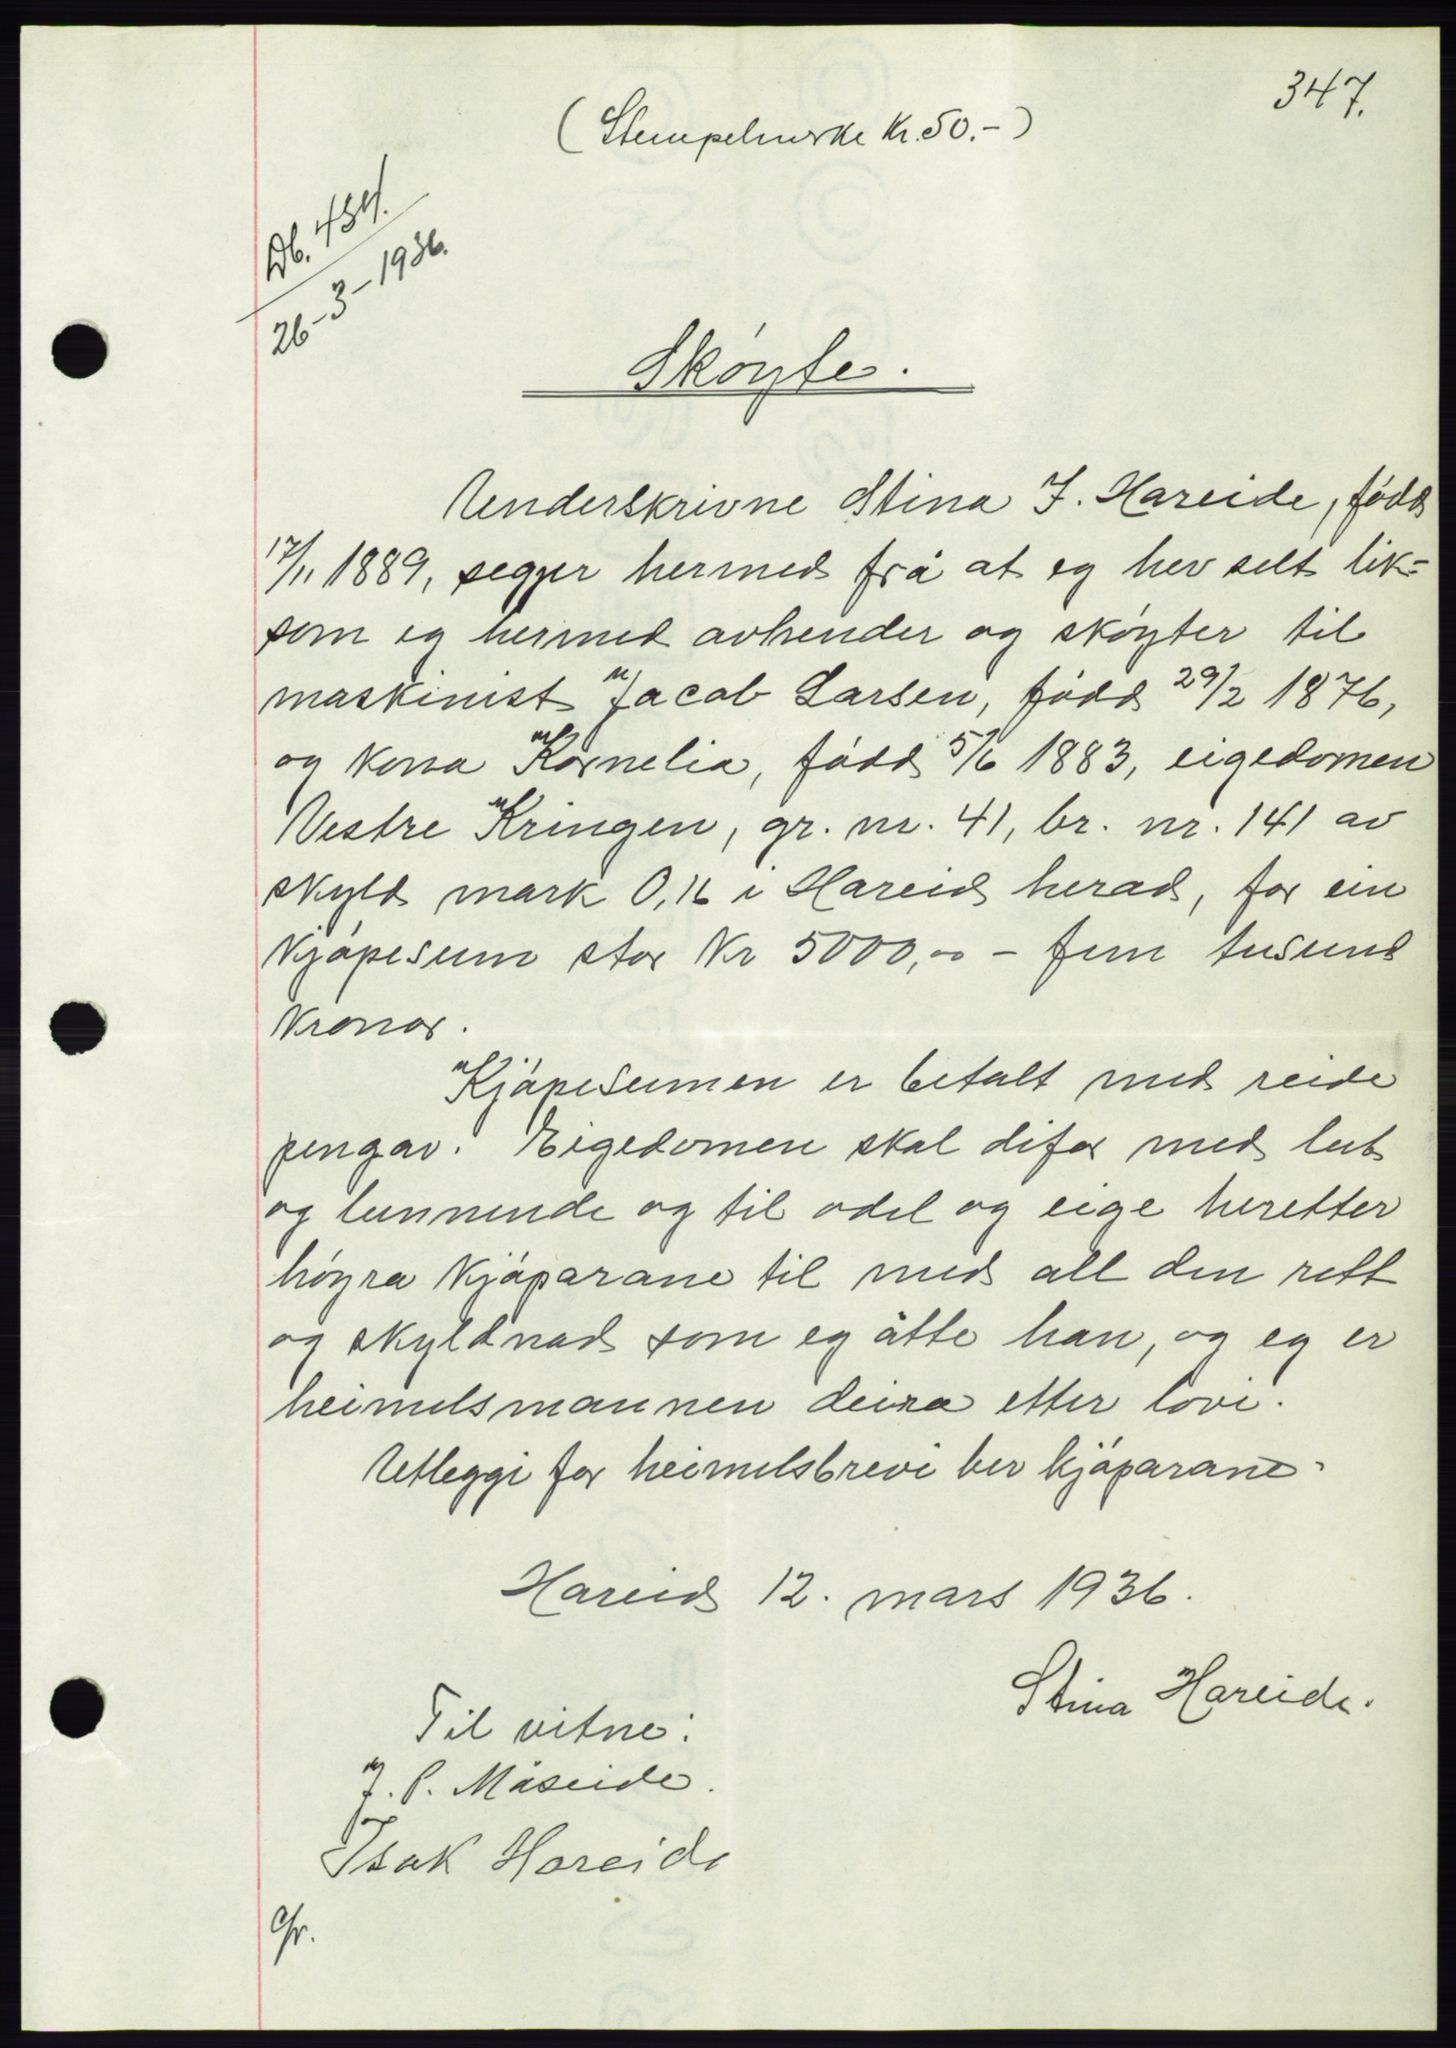 347.
(Stempelmerke Kr. 50.-)
Db. 434.
26-3-1936.
Skøyte.
Underskrivne Stina J. Hareide, född
17/11 1889, segjer hermed frå at eg hev selt lik=
som eg hermed avhender og skøyter til
maskinist Jacob Larsen, född 29/2 1876,
og kona Kornelia, född 5/6 1883, eigedomen
Vestre Kringen, gr. nr. 41, br. nr. 141 av
skyld mark 0,16 i Hareid herad, for ein
kjøpesum stor kr 5000,00 - fem tusund
kronor.
Kjøpesumen er betalt med reide
pengar. Eigedomen skal difor med lut
og lunnende og til odel og eige heretter
høyra kjøparane til med all den rett
og skyldnad som eg åtte han, og eg er
heimelsmannen deira etter lovi.
Utleggi for heimelsbrevi ber kjøparane.
Hareid 12. mars 1936.
Stina Hareide.
Til vitne:
J. P. Måseide.
Isak Hareide